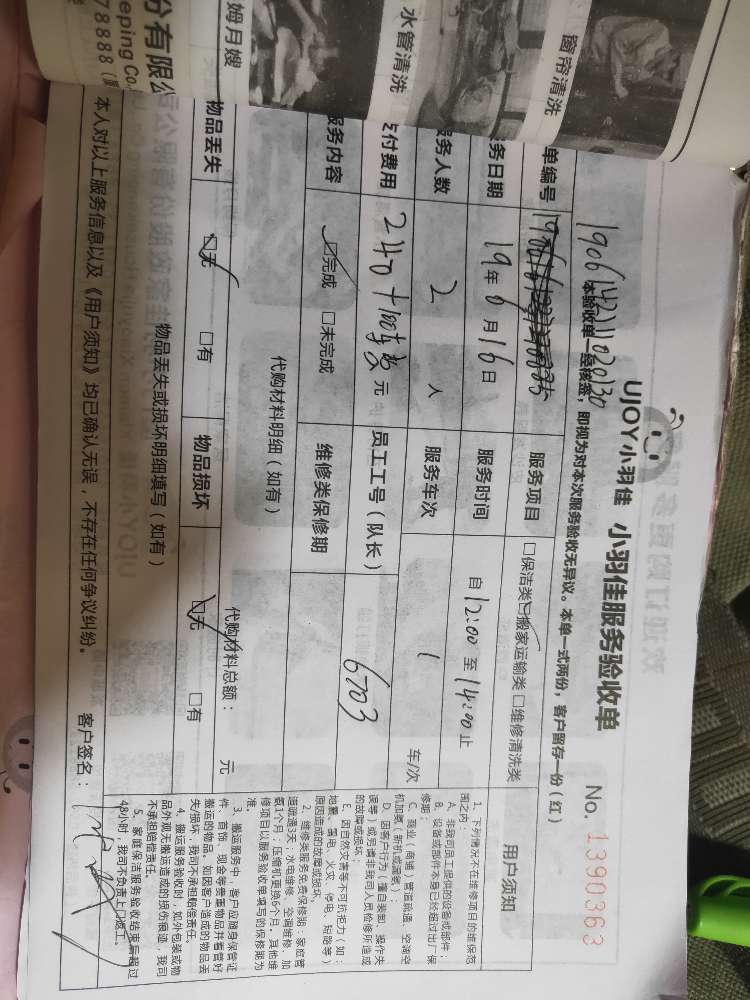 份有限公
eeping Co.
78888
姆月嫂
水管清洗
窗帘清洗
UJOY小羽佳 小羽佳服务验收单 No. 1390363
本验收单一经核签，即视为对本次服务验收无异议。本单一式两份，客户留存一份（红）
单编号
服务项目 □保洁类 ☑搬家运输类 □维修清洗类
务日期 19年6月16日 服务时间 自12:00至14:00止
服务人数 2 人 服务车次 1 车/次
支付费用 240+100 元 员工工号（队长） 6703
服务内容 ☑完成 □未完成 维修类保修期
代购材料明细（如有） 代购材料总额： 元
物品丢失 ☑无 □有 物品损坏 ☑无 □有
物品丢失或损坏明细填写（如有）
本人对以上服务信息以及《用户须知》均已确认无误，不存在任何争议纠纷。 客户签名：
用户须知
1、下列情况不在维修项目的维保范
围之内：
A、非我司员工提供的设备或部件；
B、设备或部件本身已经超过出厂保
修期；
C、商业（商铺）管道疏通、空调空
机加氨（新机或漏氨）；
D、因客户行为（擅自装卸、操作失
误等）或另请非我司人员检修所造成
的故障或损坏；
E、因自然灾害等不可抗拒力（如：
地震、雷电、火灾、停电、短路等）
原因造成的故障或损坏。
2、维修类服务免费保修期：家庭管
道疏通3天，水电维修、空调维修、加
氨1个月，压缩机更换6个月。其他维
修项目以服务验收单填写的保修期为
准。
3、搬运服务中，客户应随身保管证
件、首饰、现金等贵重物品并看管好
搬运的物品，如因客户造成的物品丢
失/损坏，我司不承担赔偿责任。
4、搬运服务验收时，如外包装或物
品外观无搬运造成的损伤痕迹，我司
不承担赔偿责任。
5、家庭保洁服务验收结束后超过
48小时，我司不负责上门返工。